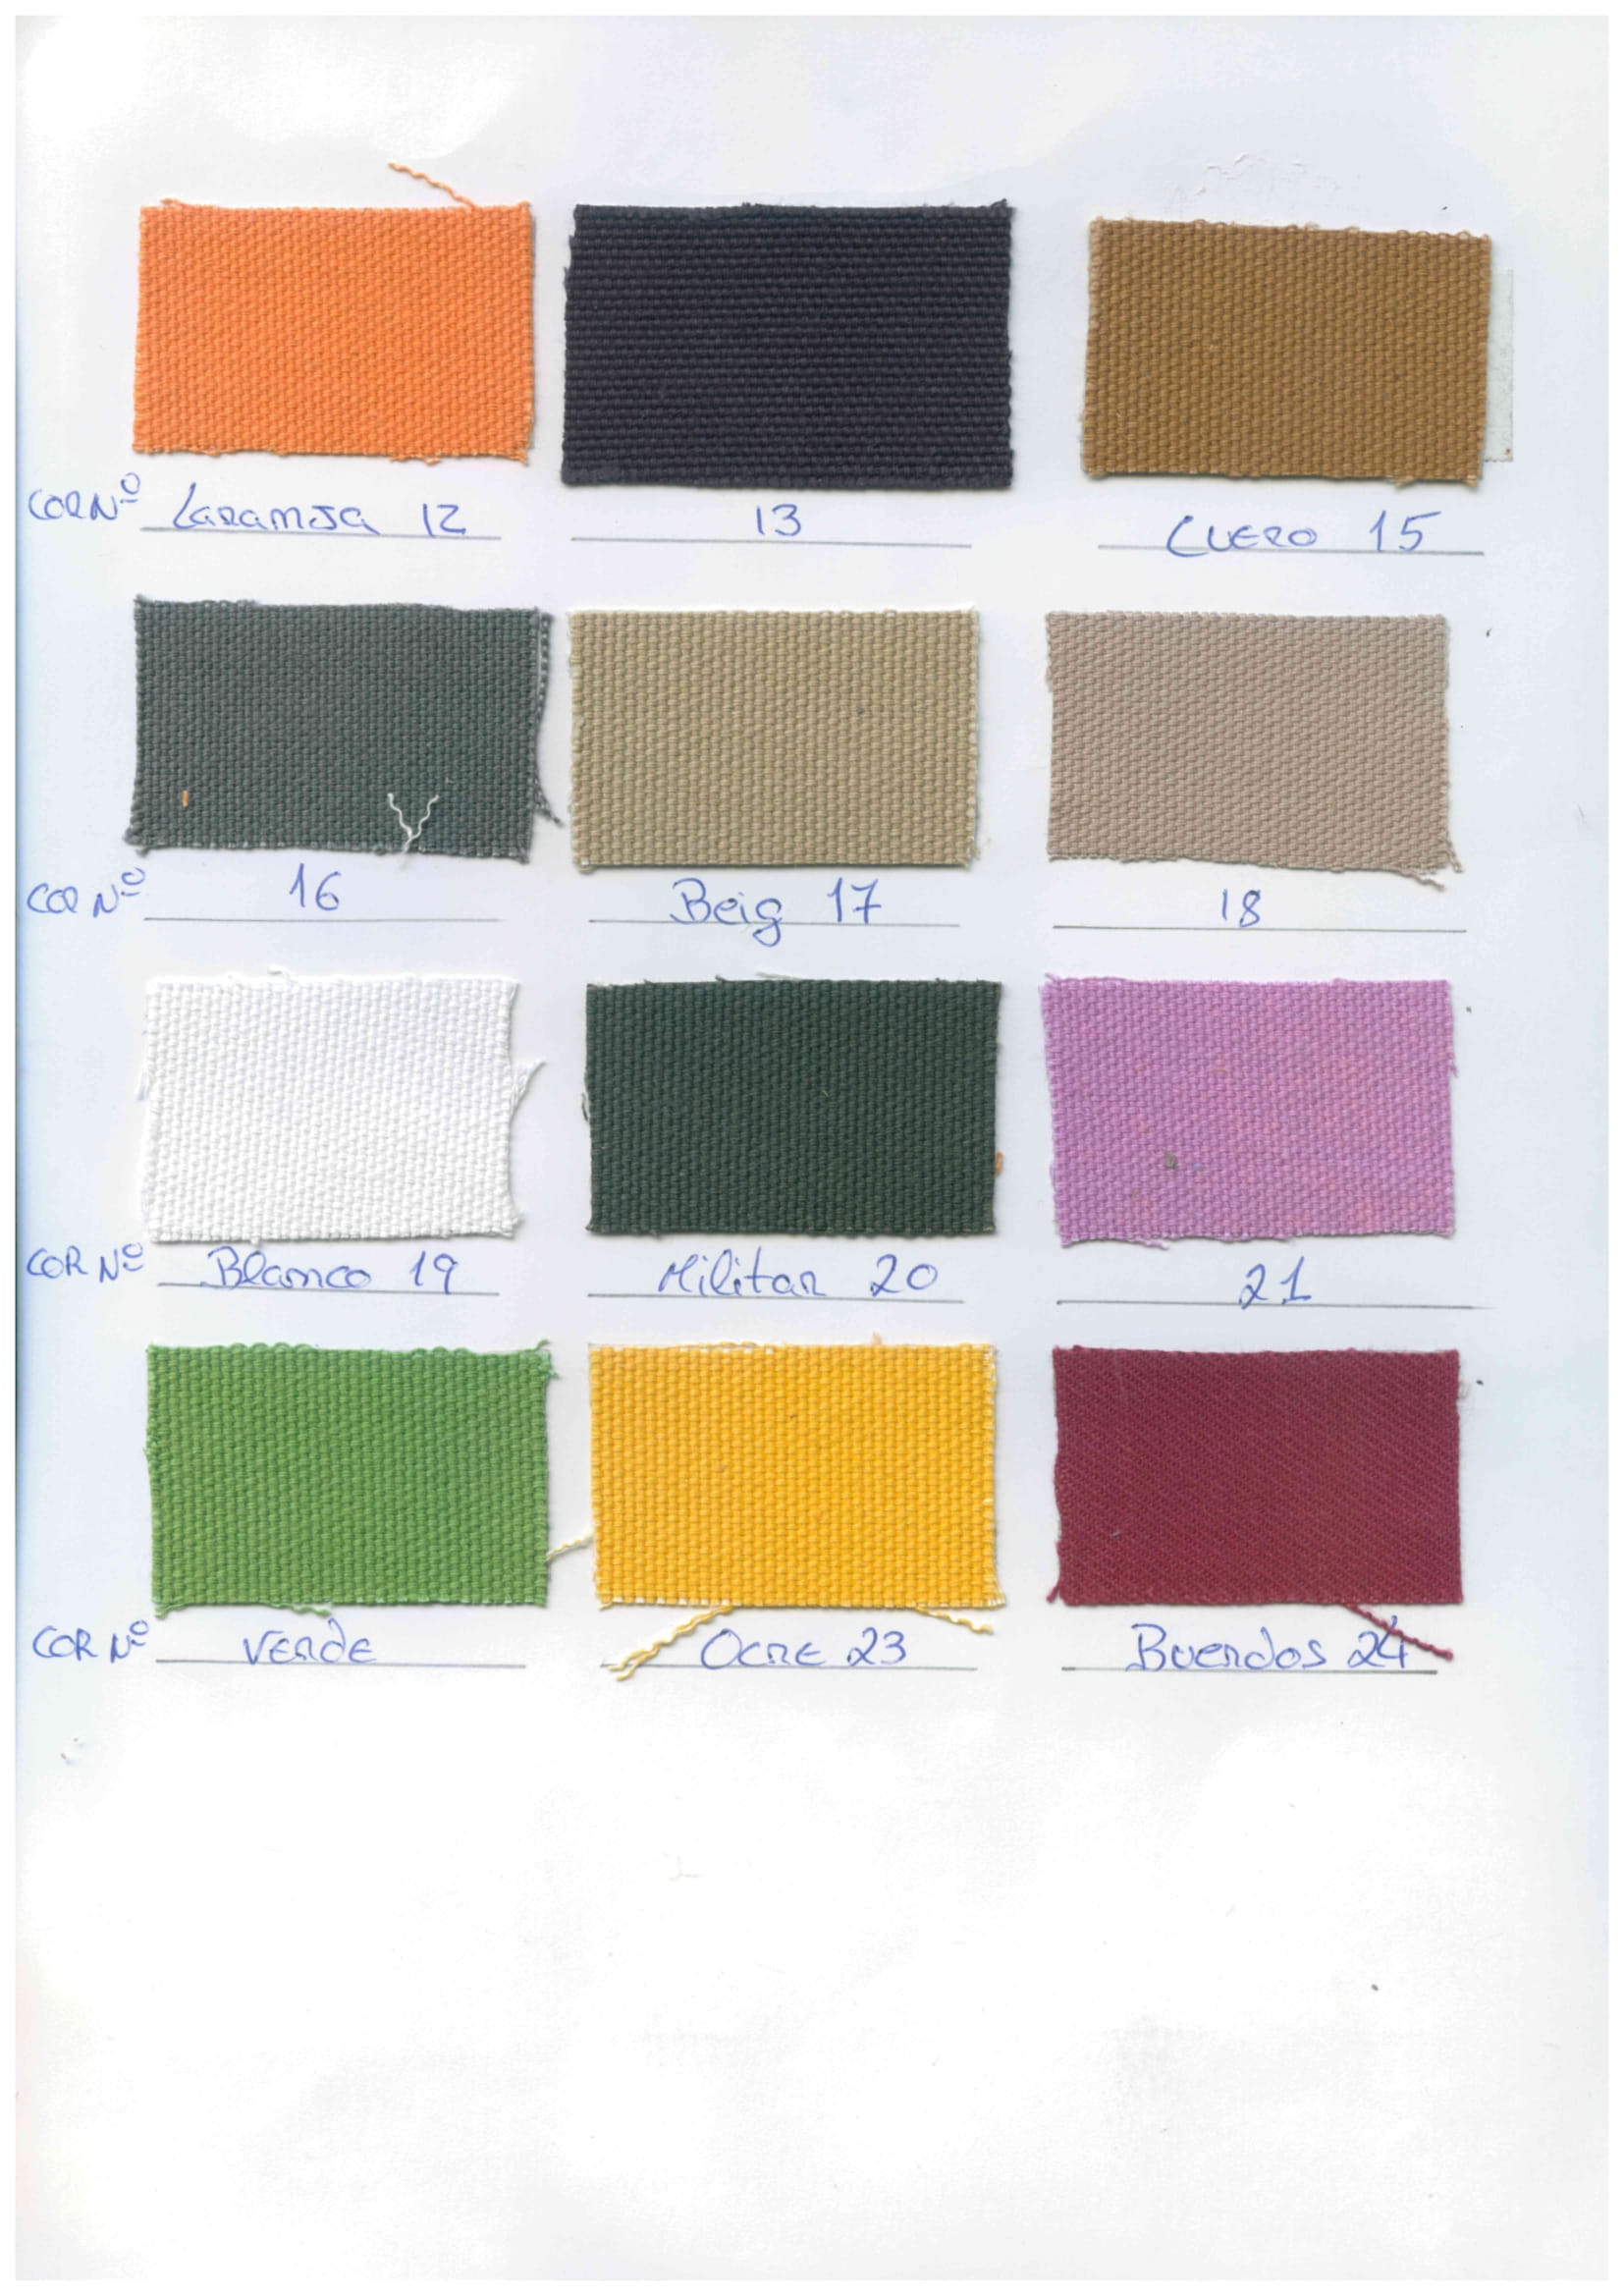 COR Nº Laranja 12 13 Cuero 15
COR Nº 16 Beig 17 18
COR Nº Blanco 19 Militar 20 21
COR Nº VERDE Ocre 23 Buerdos 24